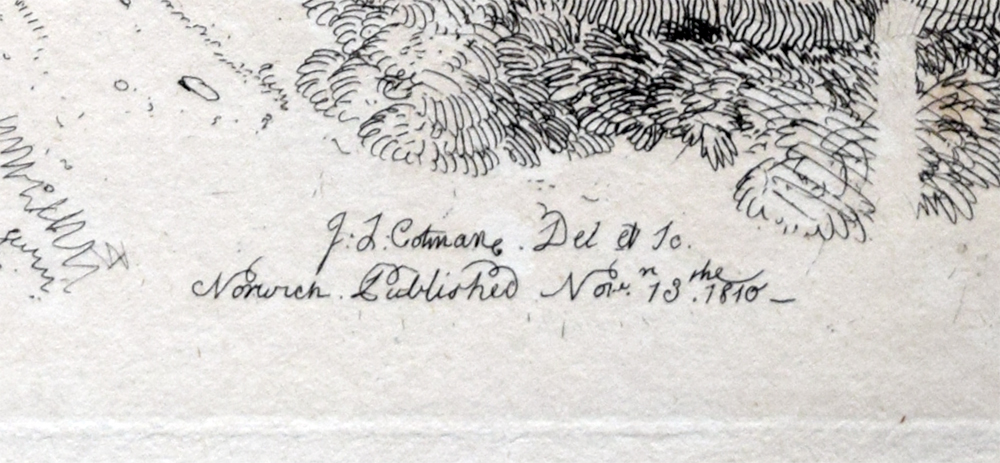 J. S. Cotman. Del et Sc.
Norwich. Published Nov.r 13.the 1810